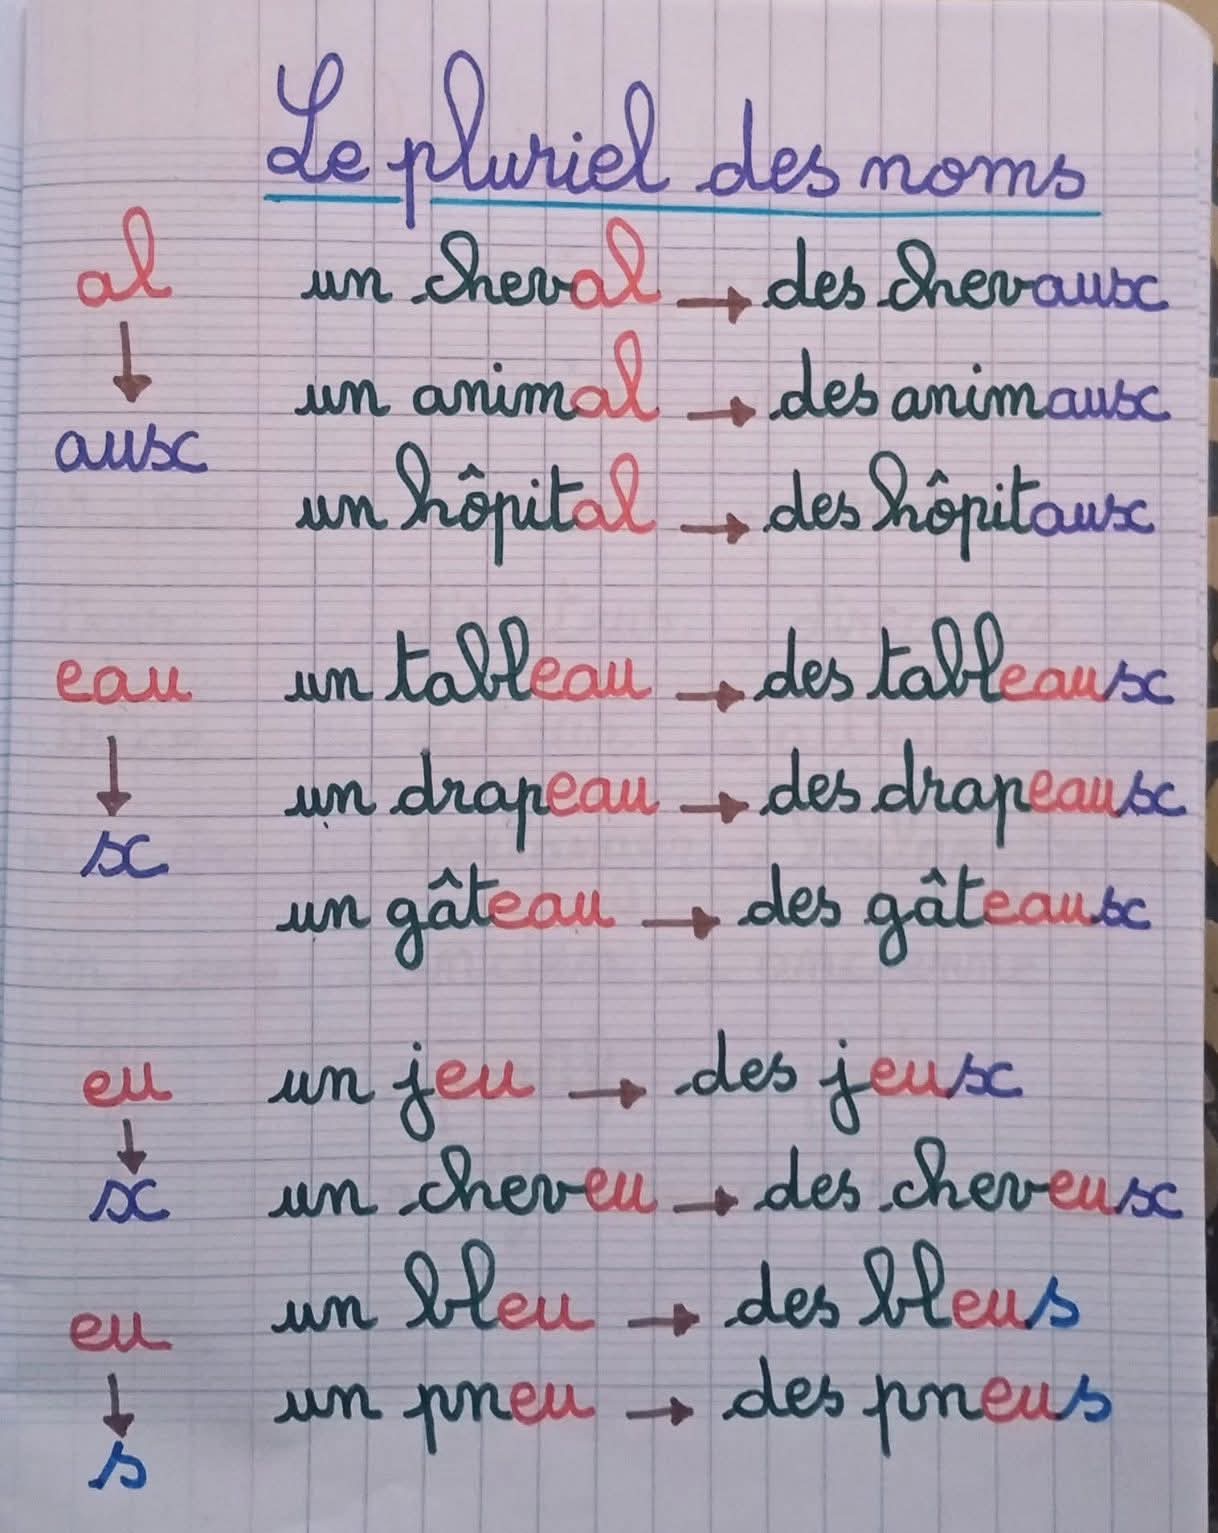 Le pluriel des noms
al un cheval → des chevaux
↓
un animal → des animaux
aux
un hôpital → des hôpitaux
eau un tableau → des tableaux
↓
un drapeau → des drapeaux
x
un gâteau → des gâteaux
eu un jeu → des jeux
↓
x un cheveu → des cheveux
eu un bleu → des bleus
↓
un pneu → des pneus
s